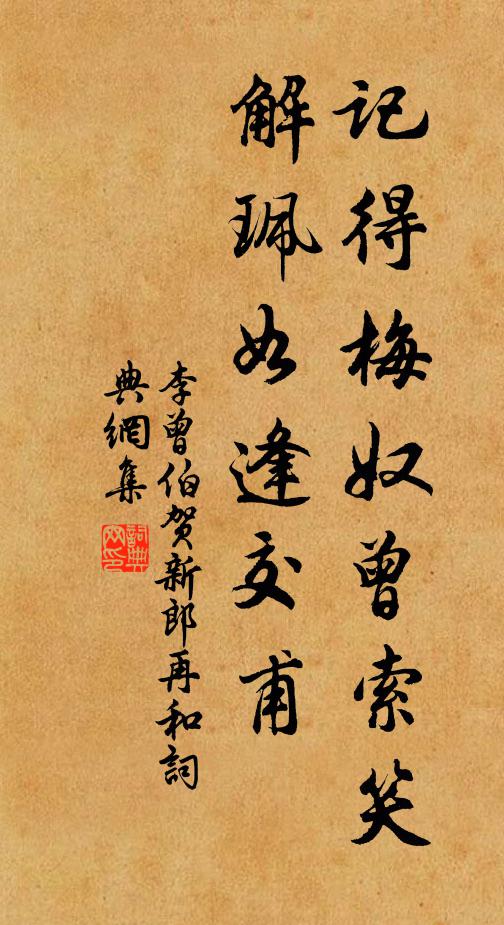 记得梅奴曾索笑
解珮如逢交甫
李曾伯贺新郎再和詞
典網集
詞典网印